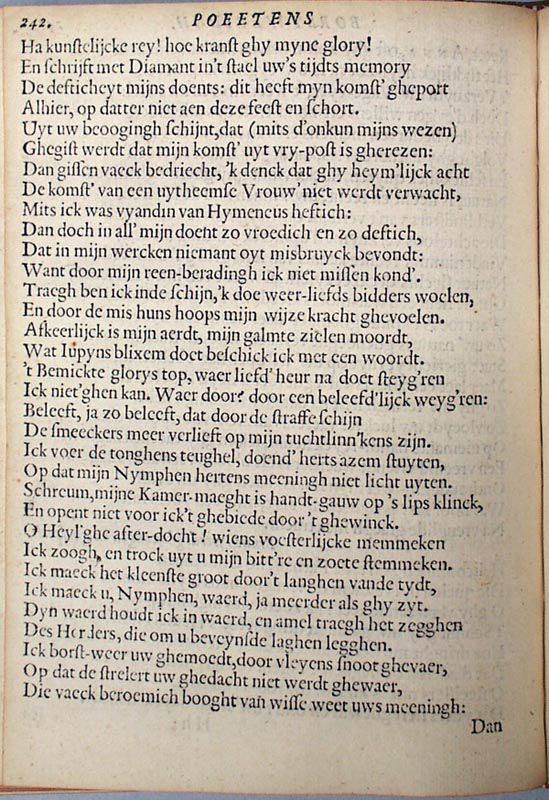 242. POEETENS
Ha kunstelijcke rey! hoe kranst ghy myne glory!
En schrijft met Diamant in't stael uw's tijdts memory
De defticheyt mijns doents: dit heeft myn komst' gheport
Alhier, op datter niet aen deze feest en schort.
Uyt uw beoogingh schijnt, dat (mits d'onkun mijns wezen)
Ghegist werdt dat mijn komst' uyt vry-post is gherezen:
Dan gissen vaeck bedriecht, 'k denck dat ghy heym'lijck acht
De komst' van een uytheemse Vrouw' niet werdt verwacht,
Mits ick was vyandin van Hymeneus heftich:
Dan doch in all' mijn doent zo vroedich en zo deftich,
Dat in mijn wercken niemant oyt misbruyck bevondt:
Want door mijn reen-beradingh ick niet missen kond'.
Traegh ben ick inde schijn, 'k doe weer-liefds bidders woelen,
En door de mis huns hoops mijn wijze kracht ghevoelen.
Afkeerlijck is mijn aerdt, mijn galmte zielen moordt,
Wat Iupyns blixem doet beschick ick met een woordt.
't Bemickte glorys top, waer liefd' heur na doet steyg'ren
Ick niet 'ghen kan. Waer door? door een beleefd'lijck weyg'ren:
Beleeft, ja zo beleeft, dat door de straffe schijn
De smeeckers meer verlieft op mijn tuchtlinn'kens zijn.
Ick voer de tonghens teughel, doend' herts azem stuyten,
Op dat mijn Nymphen hertens meeningh niet licht uyten.
Schreum, mijne Kamer-maeght is handt-gauw op 's lips klinck,
En opent niet voor ick't ghebiede door 't ghewinck.
O Heyl'ghe after-docht! wiens voesterlijcke memmeken
Ick zoogh, en trock uyt u mijn bitt're en zoete stemmeken.
Ick maeck het kleenste groot door't langhen vande tydt,
Ick maeck u, Nymphen, waerd, ja meerder als ghy zyt.
Dyn waerd houdt ick in waerd, en amel traegh het zegghen
Des Herders, die om u beveynsde laghen legghen.
Ick borst-weer uw ghemoedt, door vleyens snoot ghevaer,
Op dat de strelert uw ghedacht niet werdt ghewaer,
Die vaeck beroemich booght van wisse weet uws meeningh:
Dan